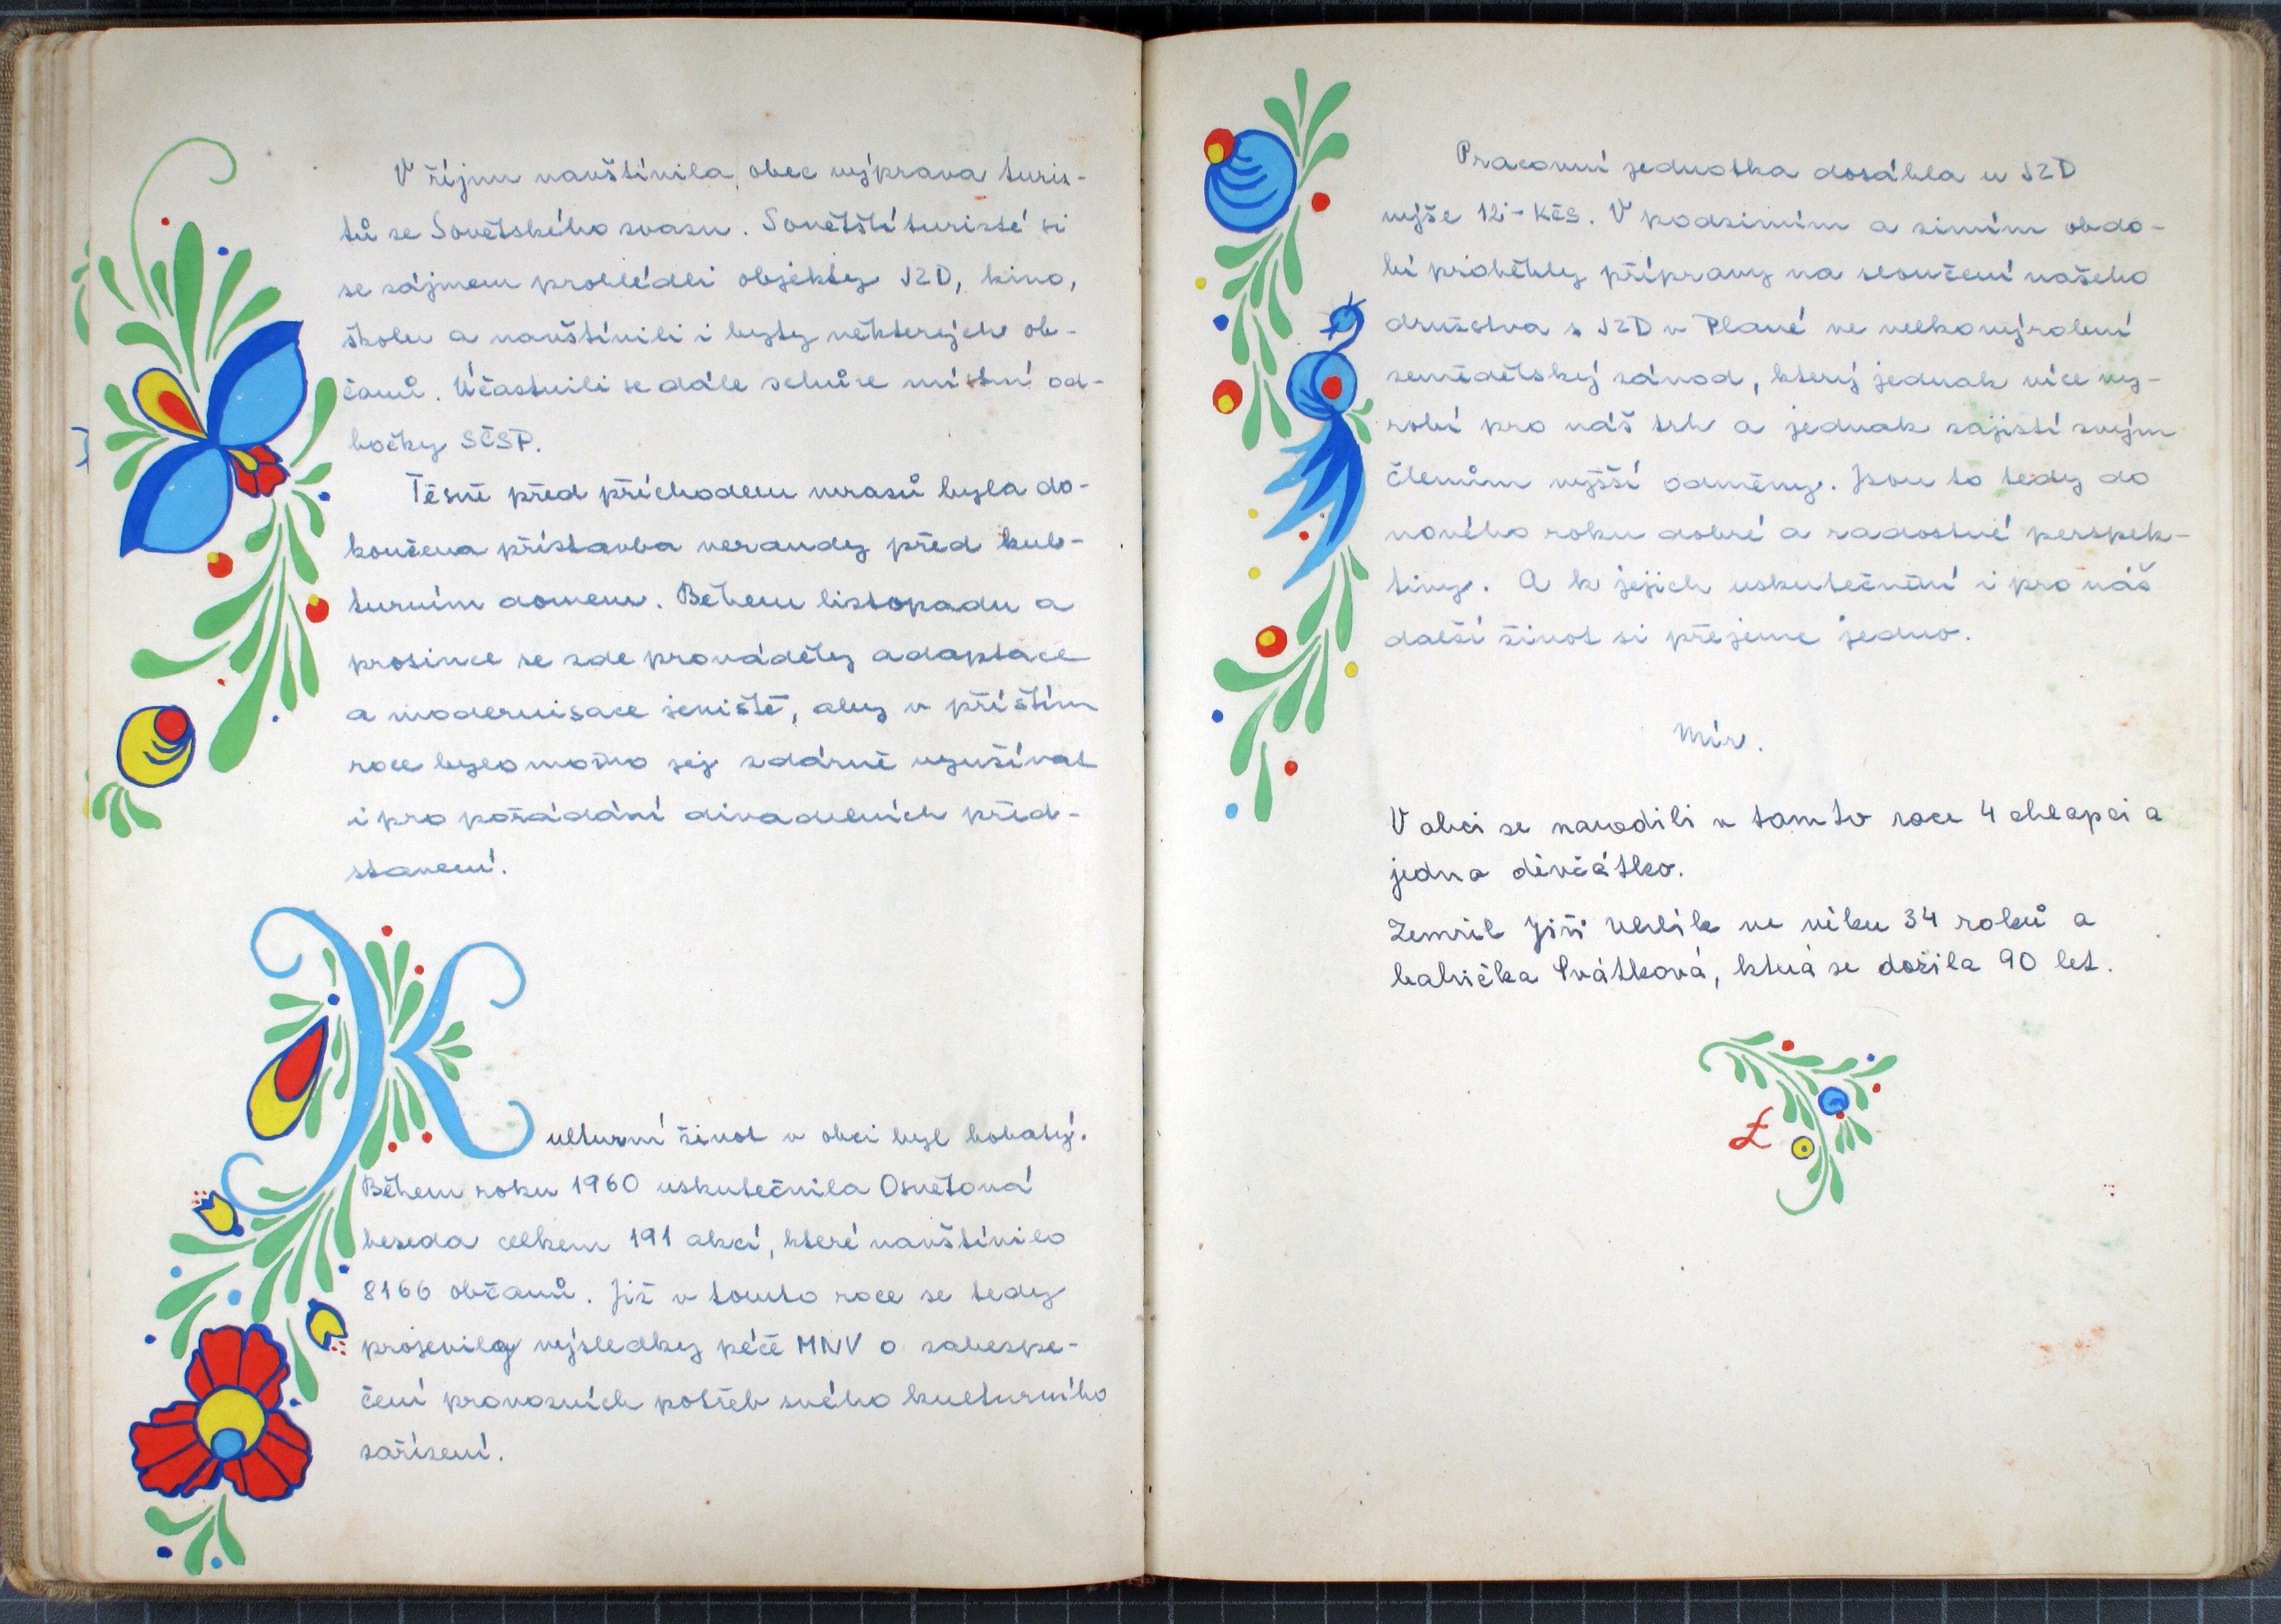 V říjnu navštívila obec výprava turis-
tů ze Sovětského svazu. Sovětští turisté si
se zájmem prohlédli objekty JZD, kino,
školu a navštívili i byty některých ob-
čanů. Účastnili se dále schůze místní od-
bočky SČSP.
Těsně před příchodem mrazů byla do-
končena přístavba verandy před kul-
turním domem. Během listopadu a
prosince se zde prováděly adaptace
a modernisace jeviště, aby v příštím
roce bylo možno jej zdárně využívat
i pro pořádání divadelních před-
stavení.
Kulturní život v obci byl bohatý.
Během roku 1960 uskutečnila Osvětová
beseda celkem 191 akcí, které navštívilo
8166 občanů. Již v tomto roce se tedy
projevily výsledky péče MNV o zabezpe-
čení provozních potřeb svého kulturního
zařízení.
Pracovní jednotka dosáhla u JZD
výše Kčs. V podzimím a zimím obdo-
bí proběhly přípravy na sloučení našeho
družstva s JZD v Plané ve velkovýrobní
zemědělský závod, který jednak více vy-
robí pro náš trh a jednak zajistí svým
členům vyšší odměny. Jsou to tedy do
nového roku dobré a radostné perspek-
tivy. A k jejich uskutečnění i pro náš
další život si přejeme jedno.
Mír.
V obci se narodili v tomto roce 4 chlapci a
jedno děvčátko.
Zemřel Jiří Uhlík ve věku 34 roků a
babička Svátková, která se dožila 90 let.